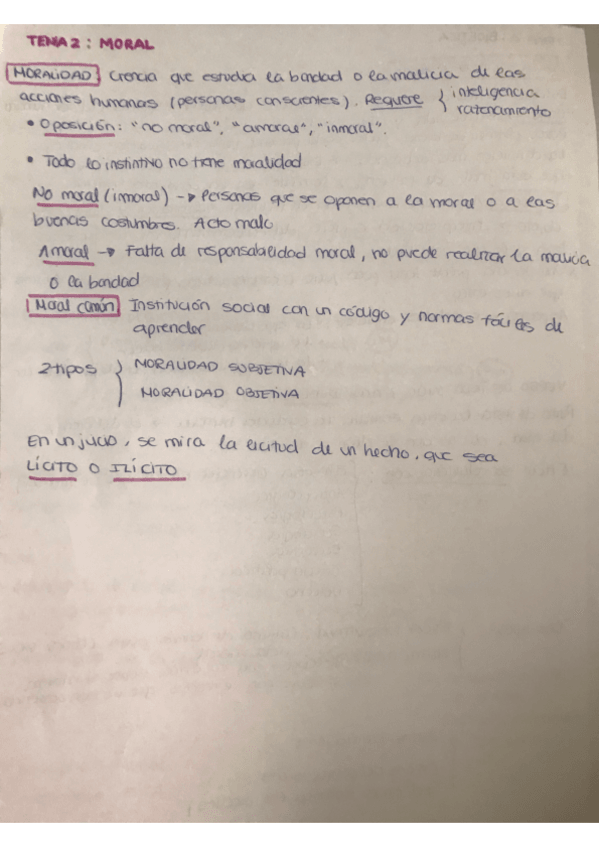 TEMA 2: MORAL
MORALIDAD Ciencia que estudia la bondad o la malicia de las
acciones humanas (personas conscientes). Requiere { inteligencia
razonamiento
• Oposición: "no moral", "amoral", "inmoral".
• Todo lo instintivo no tiene moralidad
No moral (inmoral) -> Personas que se oponen a la moral o a las
buenas costumbres. Acto malo
Amoral -> Falta de responsabilidad moral, no puede realizar la malicia
o la bondad
Moral común Institución social con un código y normas fáciles de
aprender
2 tipos } MORALIDAD SUBJETIVA
MORALIDAD OBJETIVA
En un juicio, se mira la licitud de un hecho, que sea
LÍCITO O ILÍCITO